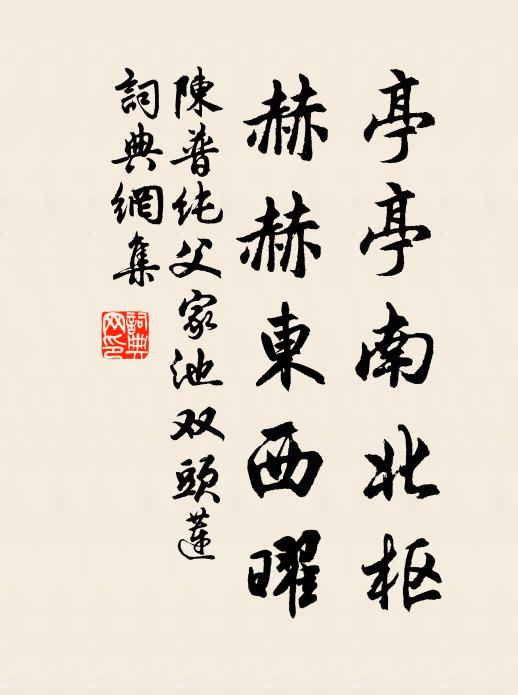 亭亭南北枢
赫赫東西曜
陳普纯父家池双頭蓮
詞典網集
詞典网印